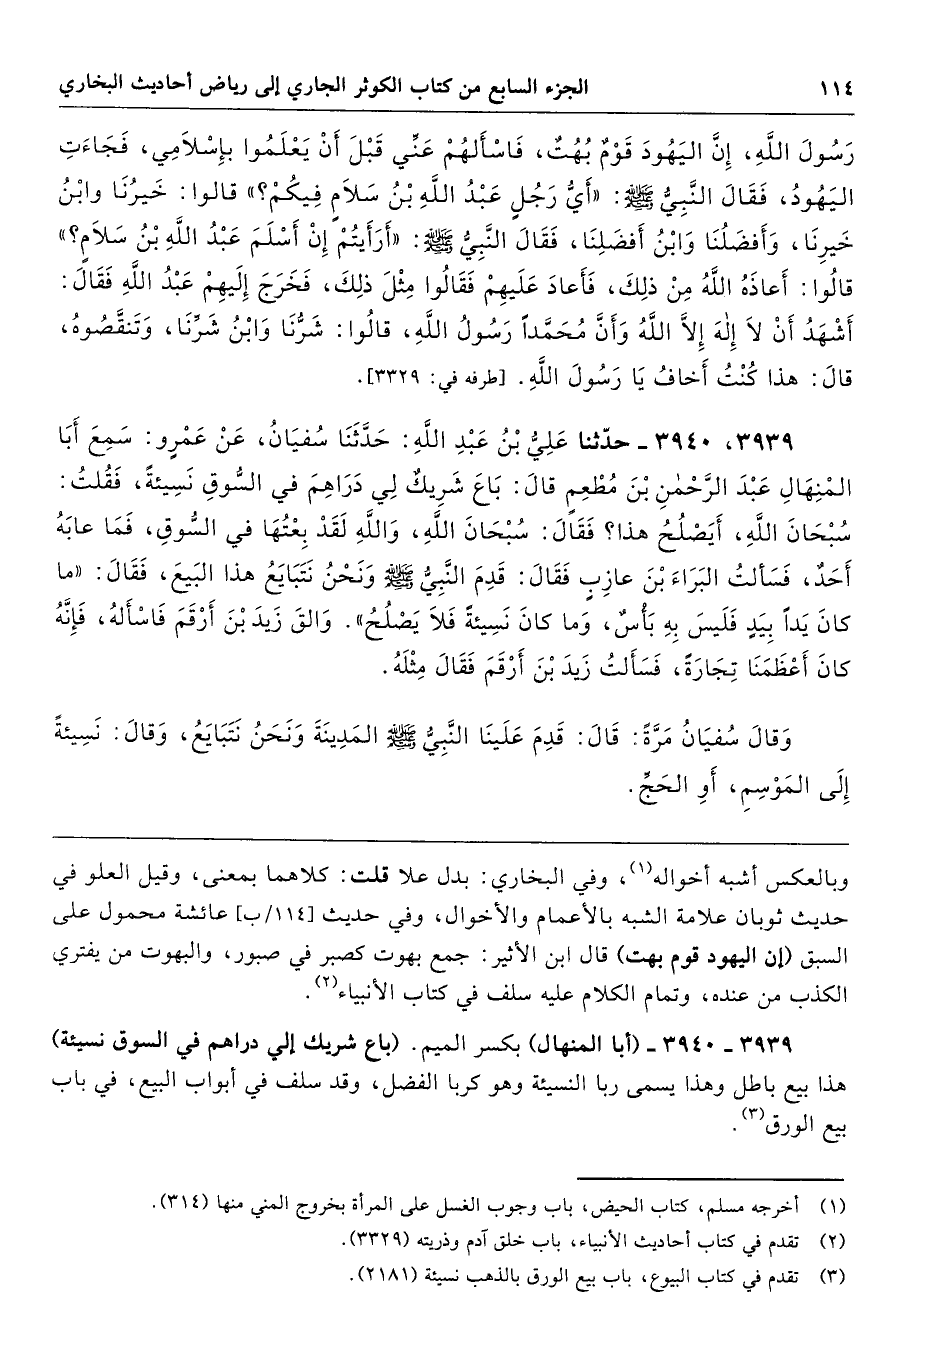 ١١٤ الجزء السابع من كتاب الكوثر الجاري إلى رياض أحاديث البخاري
رَسُولَ اللَّهِ، إِنَّ اليَهُودَ قَوْمٌ بُهُتٌ، فَاسْأَلهُمْ عَنِّي قَبْلَ أَنْ يَعْلَمُوا بِإِسْلَامِي، فَجَاءَتِ
اليَهُودُ، فَقَالَ النَّبِيُّ ﷺ: «أَيُّ رَجُلٍ عَبْدُ اللَّهِ بْنُ سَلَامٍ فِيكُمْ؟» قالوا: خَيرُنَا وابْنُ
خَيرِنَا، وَأَفضَلُنَا وَابْنُ أَفضَلِنَا، فَقَالَ النَّبِيُّ ﷺ: «أَرَأَيتُمْ إِنْ أَسْلَمَ عَبْدُ اللَّهِ بْنُ سَلَامٍ؟»
قالُوا: أَعاذَهُ اللَّهُ مِنْ ذلِكَ، فَأَعادَ عَلَيهِمْ فَقَالُوا مِثْلَ ذلِكَ، فَخَرَجَ إِلَيهِمْ عَبْدُ اللَّهِ فَقَالَ:
أَشْهَدُ أَنْ لاَ إِلٰهَ إِلاَّ اللَّهُ وَأَنَّ مُحَمَّداً رَسُولُ اللَّهِ، قالُوا: شَرُّنَا وَابْنُ شَرِّنَا، وَتَنَقَّصُوهُ،
قالَ: هذا كُنْتُ أَخافُ يَا رَسُولَ اللَّهِ. [طرفه في: ٣٣٢٩].
٣٩٣٩، ٣٩٤٠ - حدّثنا عَلِيُّ بْنُ عَبْدِ اللَّهِ: حَدَّثَنَا سُفيَانُ، عَنْ عَمْرٍو: سَمِعَ أَبَا
المْنِهَالِ عَبْدَ الرَّحْمٰنِ بْنَ مُطْعِمٍ قالَ: بَاعَ شَرِيكٌ لِي دَرَاهِمَ في السُّوقِ نَسِيئَةً، فَقُلتُ:
سُبْحَانَ اللَّهِ، أَيَصْلُحُ هذا؟ فَقَالَ: سُبْحَانَ اللَّهِ، وَاللَّهِ لَقَدْ بِعْتُهَا في السُّوقِ، فَمَا عابَهُ
أَحَدٌ، فَسَأَلتُ البَرَاءَ بْنَ عازِبٍ فَقَالَ: قَدِمَ النَّبِيُّ ﷺ وَنَحْنُ نَتَبَايَعُ هذا البَيعَ، فَقَالَ: «ما
كانَ يَداً بِيَدٍ فَلَيسَ بِهِ بَأْسٌ، وَما كانَ نَسِيئَةً فَلاَ يَصْلُحُ». وَالقَ زَيدَ بْنَ أَرْقَمَ فَاسْأَلهُ، فَإِنَّهُ
كانَ أَعْظَمَنَا تِجَارَةً، فَسَأَلتُ زَيدَ بْنَ أَرْقَمَ فَقَالَ مِثْلَهُ.
وَقالَ سُفيَانُ مَرَّةً: قَالَ: قَدِمَ عَلَينَا النَّبِيُّ ﷺ المَدِينَةَ وَنَحْنُ نَتَبَايَعُ، وَقالَ: نَسِيئَةً
إِلَى المَوْسِمِ، أَوِ الحَجِّ.
وبالعكس أشبه أخواله(١)، وفي البخاري: بدل علا قلت: كلاهما بمعنى، وقيل العلو في
حديث ثوبان علامة الشبه بالأعمام والأخوال، وفي حديث [١١٤/ب] عائشة محمول على
السبق (إن اليهود قوم بهت) قال ابن الأثير: جمع بهوت كصبر في صبور، والبهوت من يفتري
الكذب من عنده، وتمام الكلام عليه سلف في كتاب الأنبياء(٢).
٣٩٣٩ - ٣٩٤٠ - (أبا المنهال) بكسر الميم. (باع شريك إلي دراهم في السوق نسيئة)
هذا بيع باطل وهذا يسمى ربا النسيئة وهو كربا الفضل، وقد سلف في أبواب البيع، في باب
بيع الورق(٣).
(١) أخرجه مسلم، كتاب الحيض، باب وجوب الغسل على المرأة بخروج المني منها (٣١٤).
(٢) تقدم في كتاب أحاديث الأنبياء، باب خلق آدم وذريته (٣٣٢٩).
(٣) تقدم في كتاب البيوع، باب بيع الورق بالذهب نسيئة (٢١٨١).